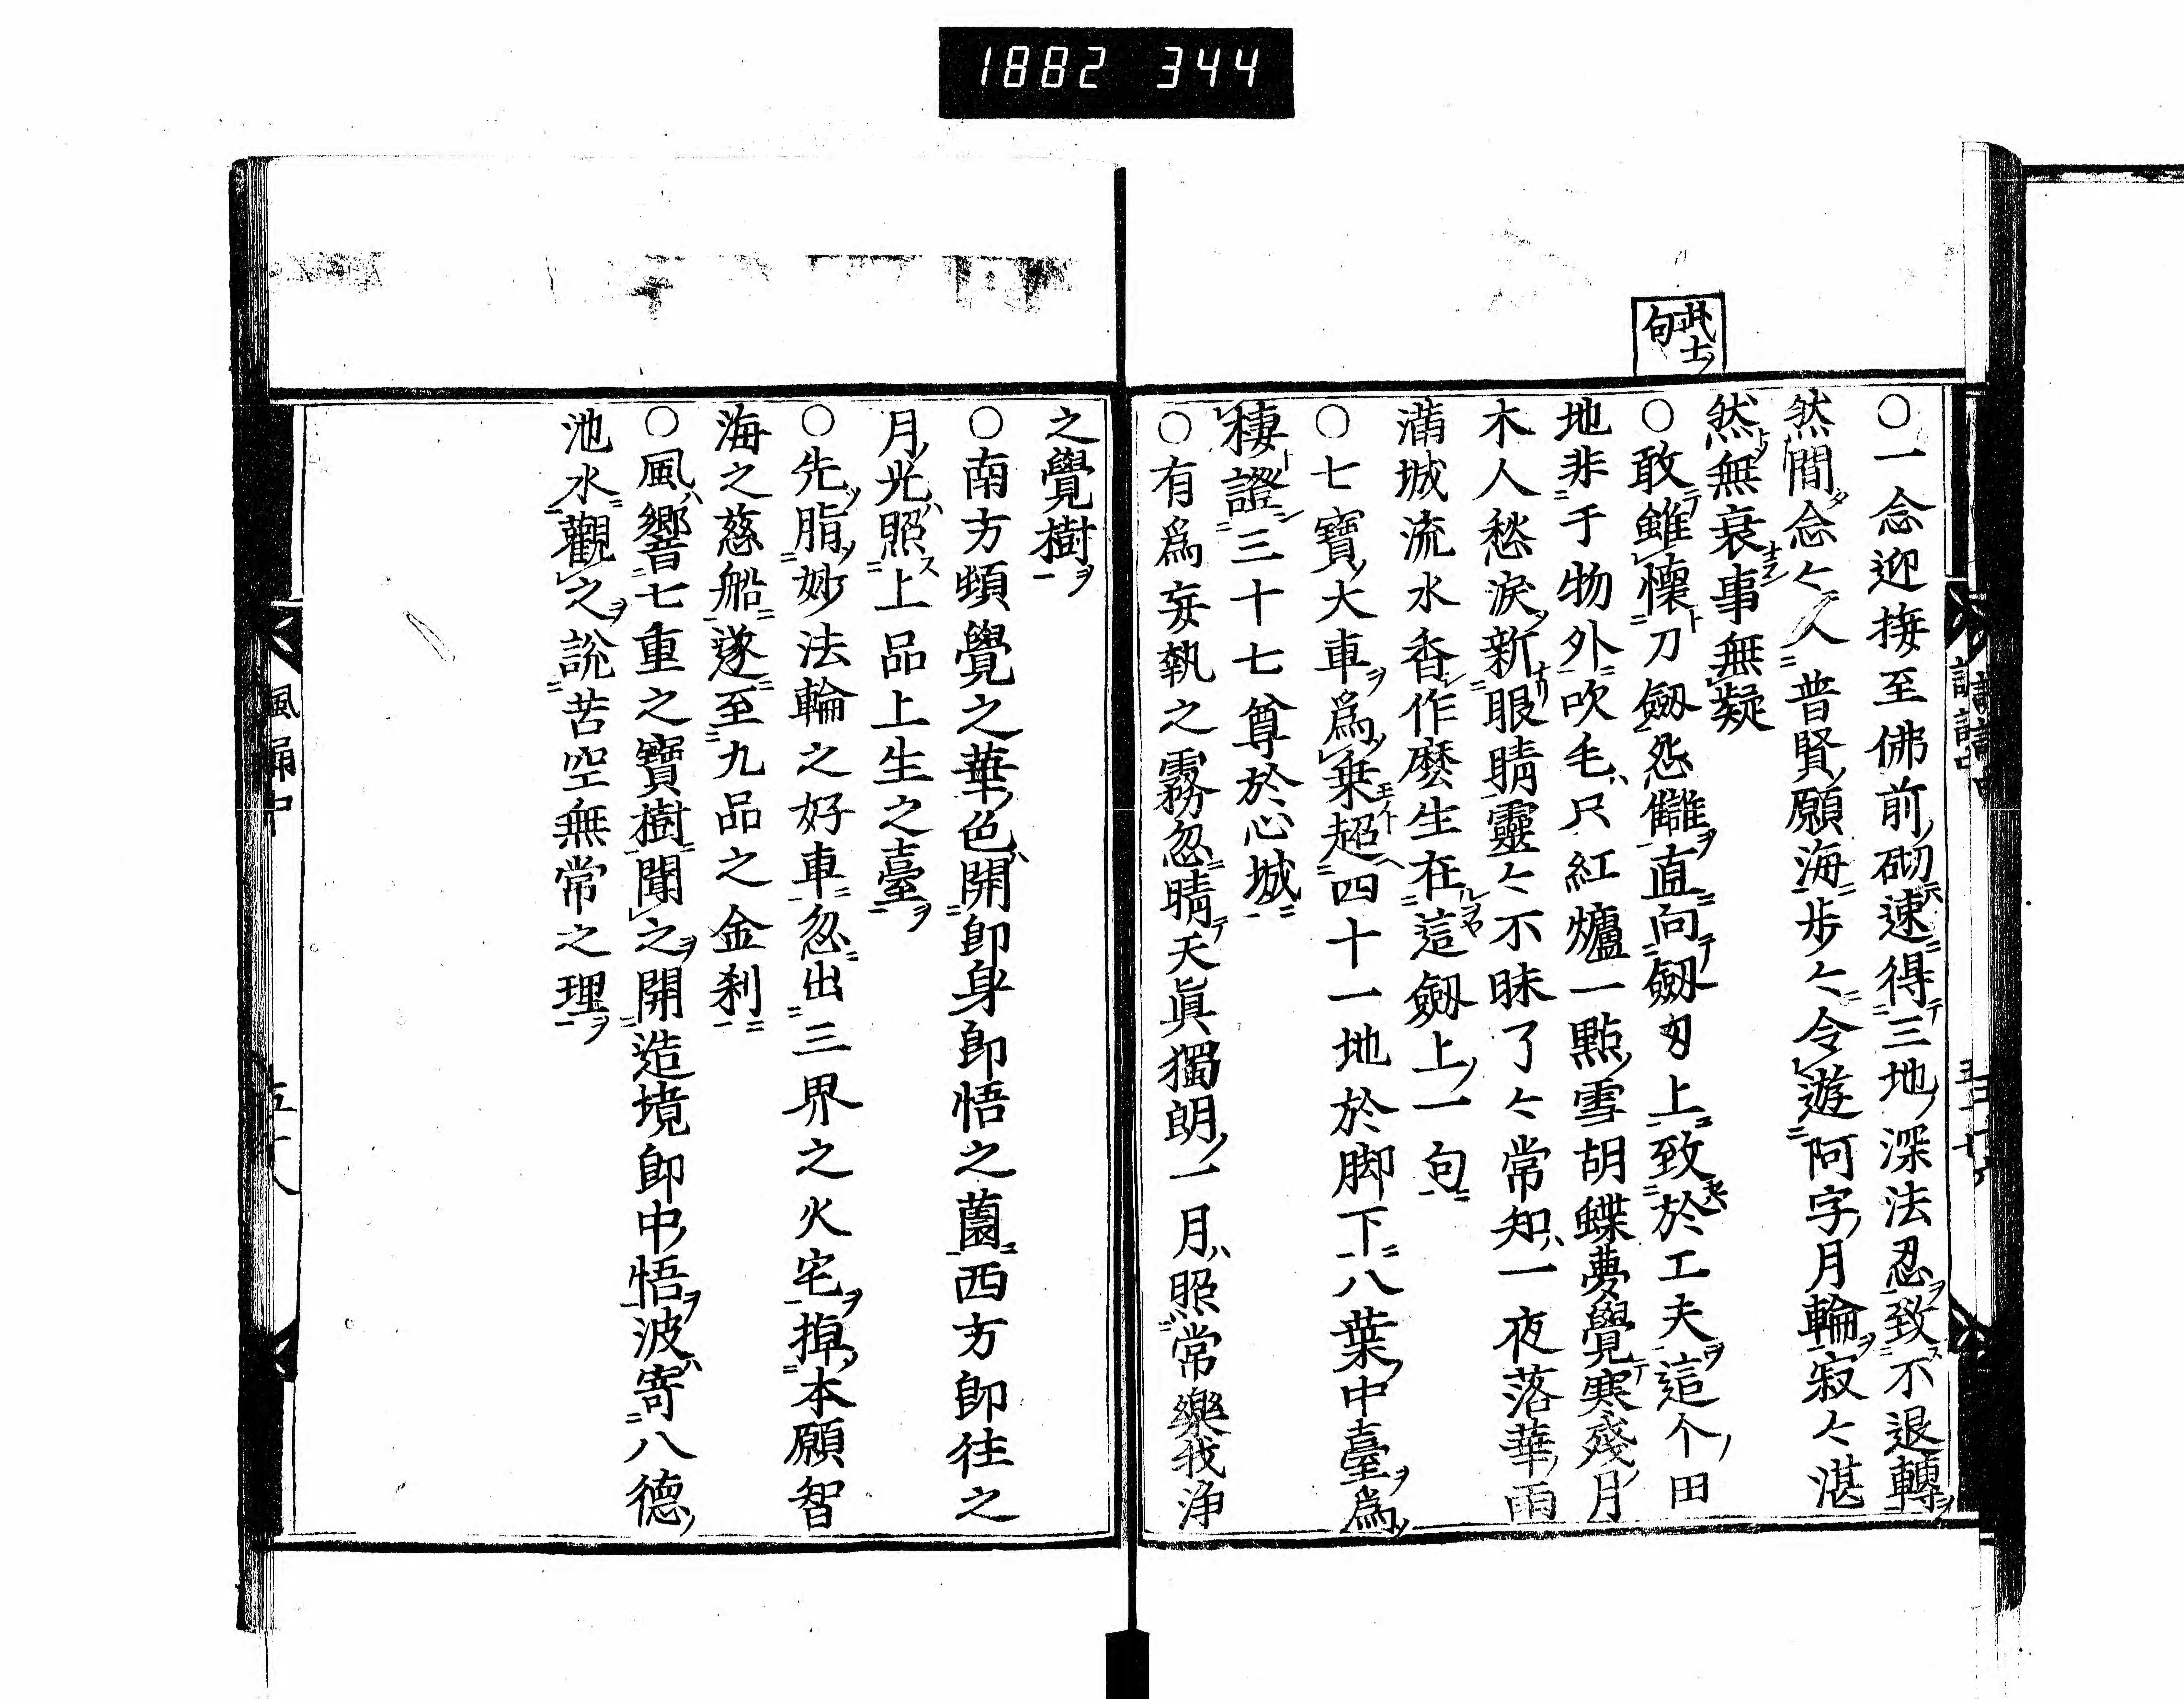 1882 344
武士ノ
句
○一念迎接至佛前ノ砌速得三地ノ深法忍致不退轉
然間念々人普賢ノ願海歩々令遊阿字ノ月輪寂々湛
然無衰事無疑
○敢雖懷刀劔怨讎直向劔刄上致於工夫這个ノ田
地非于物外吹毛只紅爐一點ノ雪胡蝶夢覺寒殘月
木人愁淚新眼睛靈々不昧了々常知一夜落華ノ雨
滿城流水香作麼生在這劔上ノ一句
○七寶ノ大車爲乗超四十一地於脚下八葉ノ中臺爲
棲證三十七尊於心城
○有爲妄執之霧忽晴天眞獨朗ノ一月照常樂我淨
之覺樹
○南方頓覺之華ノ色開卽身卽悟之薗西方卽往之
月ノ光照上品上生之臺
○先脂妙法輪之好車忽出三界之火宅掉本願智
海之慈船遂至九品之金刹
○風響七重之寶樹聞之開造境卽中ノ悟波寄八德ノ
池水觀之說苦空無常之理
風誦中